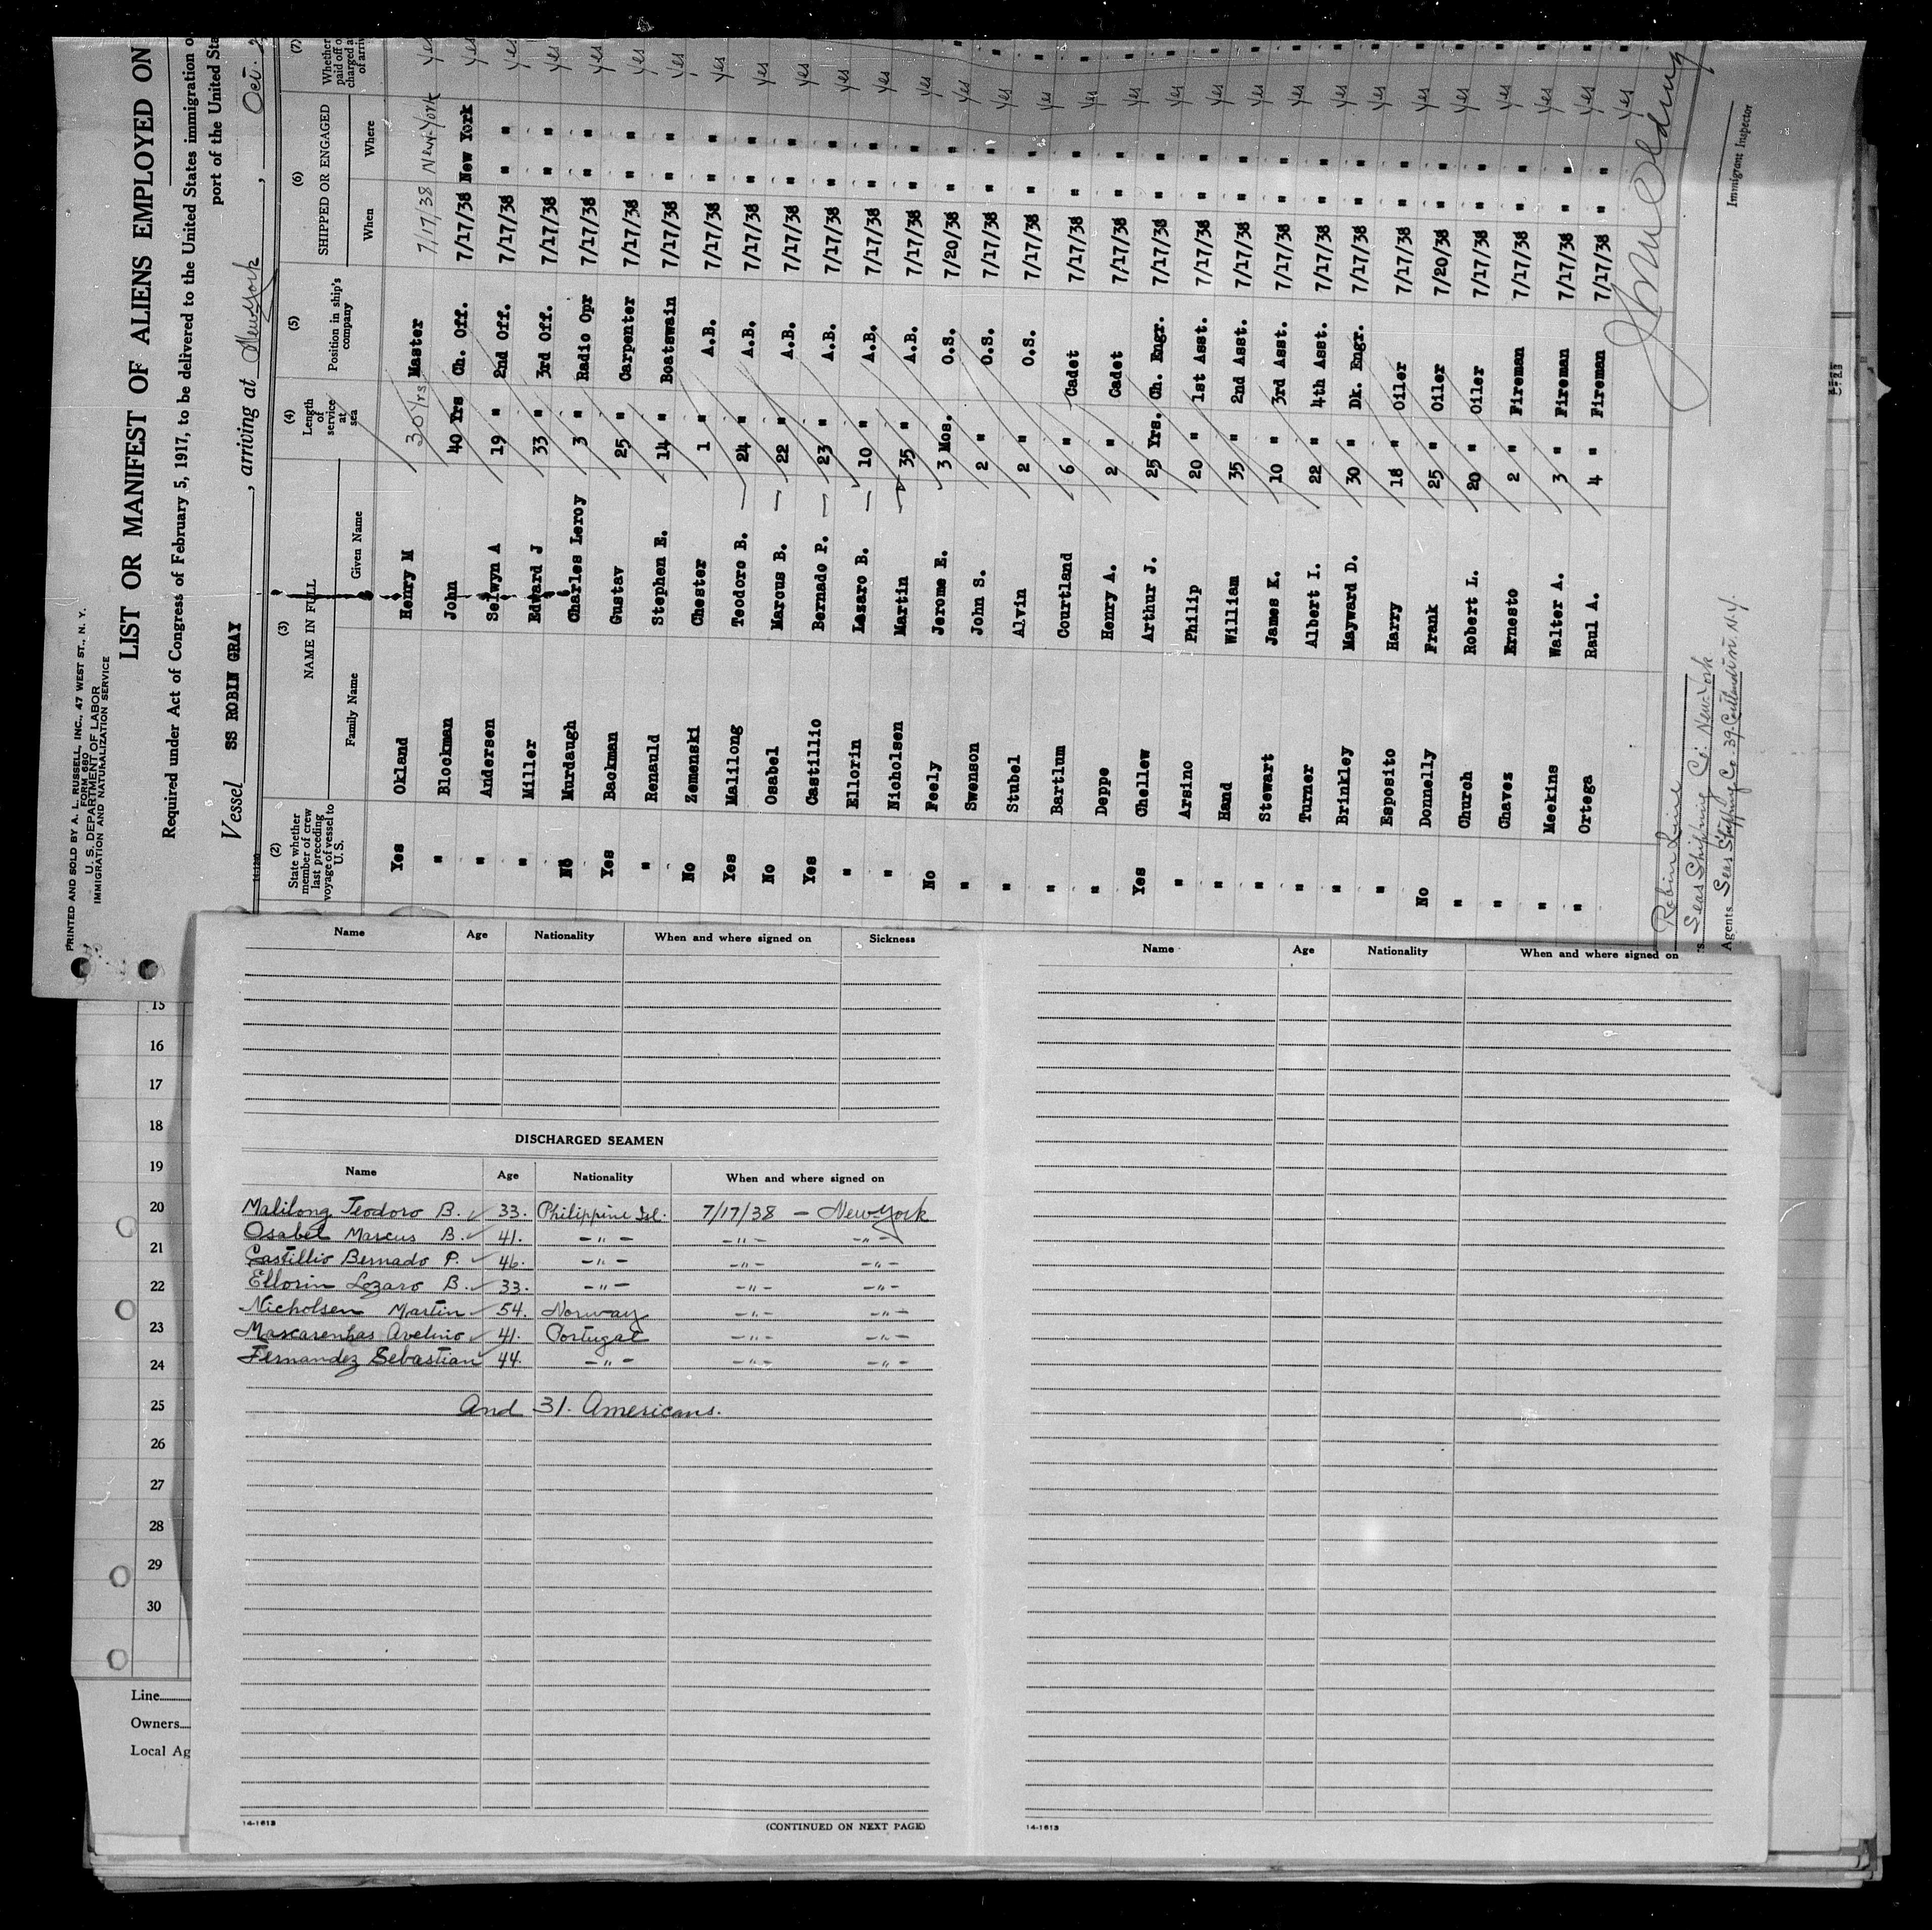 PRINTED AND SOLD BY A. L. RUSSELL, INC., 47 WEST ST., N. Y.
FORM 680
U. S. DEPARTMENT OF LABOR
IMMIGRATION AND NATURALIZATION SERVICE
LIST OR MANIFEST OF ALIENS EMPLOYED ON
Required under Act of Congress of February 5, 1917, to be delivered to the United States immigration
port of the United Sta
Vessel SS ROBIN GRAY, arriving at New York, Oct.
14-1240
(2) (3) (4) (5) (6) (7)
State whether member of crew last preceding voyage of vessel to U.S. NAME IN FULL Length of service at sea Position in ship's company SHIPPED OR ENGAGED Whether paid off or
Family Name Given Name When Where
Yes Okland Henry M 30 Yrs Master 7/17/38 New York Yes
" Blockman John 40 Yrs Ch. Off. 7/17/38 New York Yes
" Andersen Selwyn A 19 " 2nd Off. 7/17/38 " " Yes
" Miller Edward J 33 " 3rd Off. 7/17/38 " " Yes
No Murdaugh Charles Leroy 3 " Radio Opr 7/17/38 " " Yes
Yes Backman Gustav 25 " Carpenter 7/17/38 " " Yes
" Renauld Stephen E. 14 " Boatswain 7/17/38 " " Yes
No Zemenski Chester 1 " A.B. 7/17/38 " " Yes
Yes Malilong Teodoro B. 24 " A.B. 7/17/38 " " Yes
No Osabel Marcus B. 22 " A.B. 7/17/38 " " Yes
Yes Castillio Bernado P. 23 " A.B. 7/17/38 " " Yes
" Ellorin Lazaro B. 10 " A.B. 7/17/38 " " Yes
" Nicholsen Martin 35 " A.B. 7/17/38 " " Yes
No Feely Jerome E. 3 Mos. O.S. 7/20/38 " " Yes
" Swenson John S. 2 " O.S. 7/17/38 " " Yes
" Stubel Alvin 2 " O.S. 7/17/38 " " Yes
" Bartlum Courtland 6 " Cadet 7/17/38 " " Yes
" Deppe Henry A. 2 " Cadet 7/17/38 " " Yes
Yes Chellew Arthur J. 25 Yrs. Ch. Engr. 7/17/38 " " Yes
" Arsino Philip 20 " 1st Asst. 7/17/38 " " Yes
" Hand William 35 " 2nd Asst. 7/17/38 " " Yes
" Stewart James K. 10 " 3rd Asst. 7/17/38 " " Yes
" Turner Albert I. 22 " 4th Asst. 7/17/38 " " Yes
" Brinkley Mayward D. 30 " Dk. Engr. 7/17/38 " " Yes
" Esposito Harry 18 " Oiler 7/17/38 " " Yes
No Donnelly Frank 25 " Oiler 7/20/38 " " Yes
" Church Robert L. 20 " Oiler 7/17/38 " " Yes
" Chavez Ernesto 2 " Fireman 7/17/38 " " Yes
" Meekins Walter A. 3 " Fireman 7/17/38 " " Yes
" Ortega Raul A. 4 " Fireman 7/17/38 " " Yes
Robin Line
Seas Shipping Co. New York
Agents Seas Shipping Co. 39 Cortlandt St. N.Y.
Immigrant Inspector
Name Age Nationality When and where signed on Sickness
DISCHARGED SEAMEN
Name Age Nationality When and where signed on
Malilong Teodoro B. 33. Philippine Isl. 7/17/38 — New York
Osabel Marcus B. 41. -"- -"- -"-
Castillio Bernado P. 46. -"- -"- -"-
Ellorin Lozaro B. 33. -"- -"- -"-
Nicholsen Martin 54. Norway -"- -"-
Mascarenhas Avelino 41. Portugal -"- -"-
Fernandez Sebastian 44. -"- -"- -"-
And 31. Americans.
14-1613
(CONTINUED ON NEXT PAGE)
Name Age Nationality When and where signed on
14-1613
15
16
17
18
19
20
21
22
23
24
25
26
27
28
29
30
Line
Owners
Local Ag